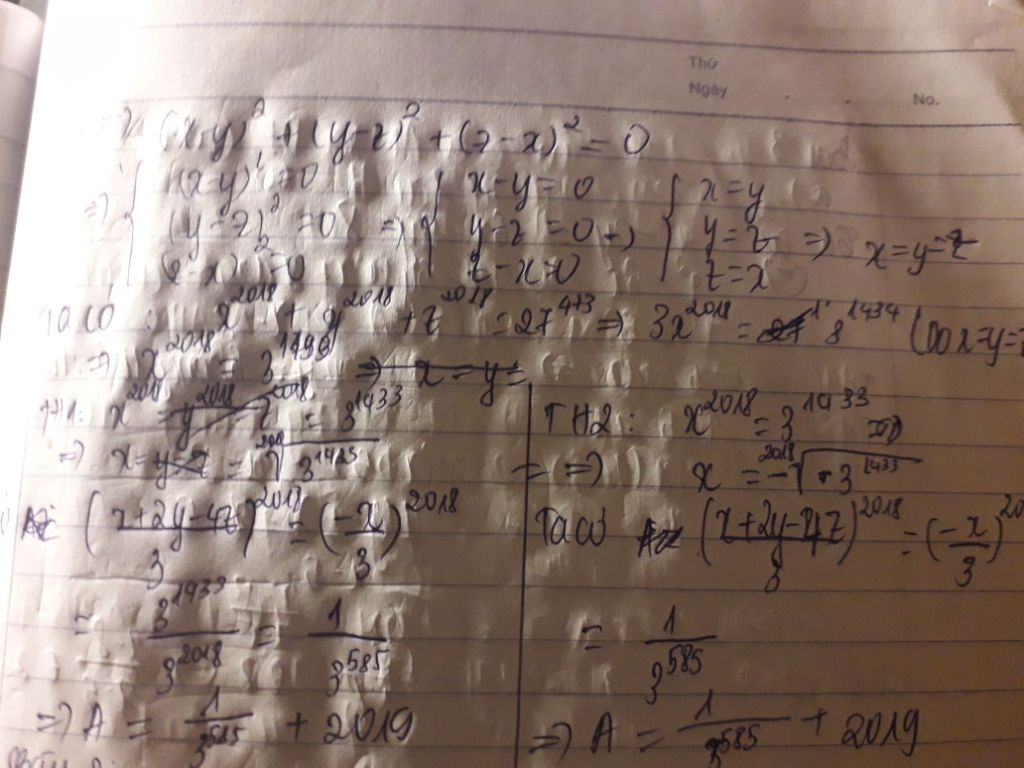 Thứ
Ngày
No.
=> (x-y)² + (y-z)² + (z-x)² = 0
=> { (x-y)² = 0 => { x-y = 0 -> { x = y
(y-z)² = 0 y-z = 0 y = z => x = y = z
(z-x)² = 0 z-x = 0 z = x
Ta có: x^2018 + y^2018 + z^2018 = 27^473 => 3x^2018 = 3^1434 (Do x=y=z
=> x^2018 = 3^1433
TH1: x^2018 = 3^1433
=> x = ^2018√3^1433
(x+2y-4z / 3)^2018 = (-x / 3)^2018
= 3^1433 / 3^2018 = 1 / 3^585
=> A = 1 / 3^585 + 2019
TH2: x^2018 = 3^1433
=> x = - ^2018√3^1433
Ta có (x+2y-4z / 3)^2018 = (-x / 3)^20
= 1 / 3^585
=> A = 1 / 3^585 + 2019